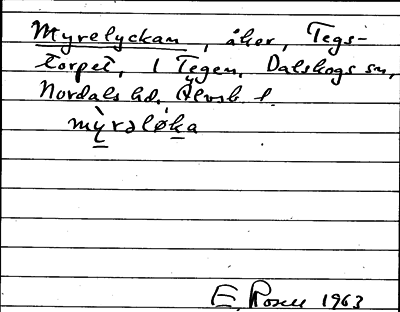 Myrelyckan, åker, Tegs-
torpet, 1 Tegen, Dalskogs sn,
Nordals hd, Älvsb l.
mỳrəløka
E. Rosell 1963